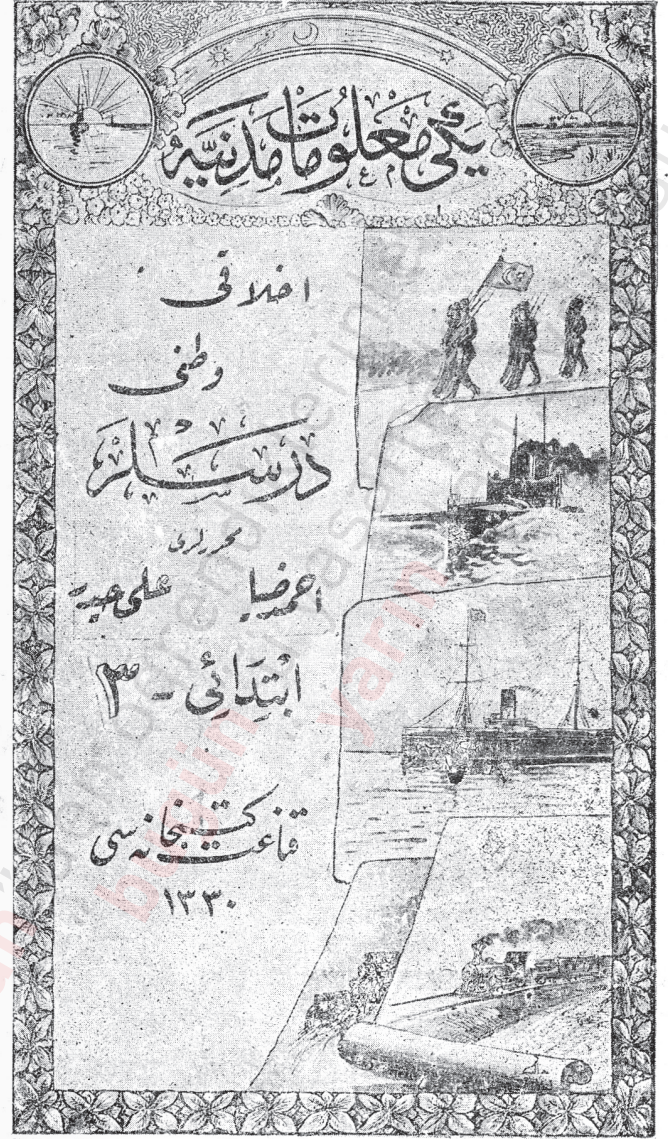 یکی معلومات مدنیه
اخلاقی
وطنی
درسلر
محررلری
احمد ضیا علی حیدر
ابتدائی - ۳
قناعت کتبخانه سی
۱۳۳۰
bugün
yarın